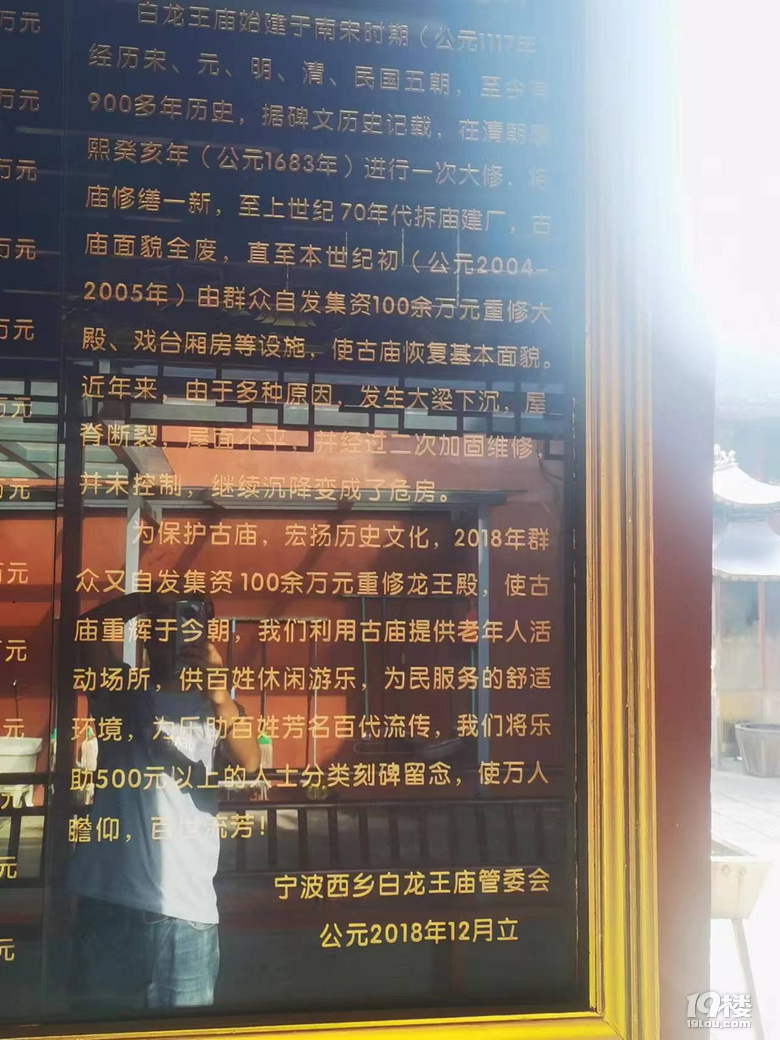 万元
万元
万元
万元
万元
万元
万元
万元
万元
元
元
元
元
白龙王庙始建于南宋时期（公元1117年
经历宋、元、明、清、民国五朝，至今
900多年历史，据碑文历史记载，在清朝康
熙癸亥年（公元1683年）进行一次大修，将
庙修缮一新，至上世纪70年代拆庙建厂，古
庙面貌全废，直至本世纪初（公元2004-
2005年）由群众自发集资100余万元重修大
殿、戏台厢房等设施，使古庙恢复基本面貌。
近年来，由于多种原因，发生大梁下沉，屋
脊断裂，屋面不平，并经过二次加固维修，
并未控制，继续沉降变成了危房。
为保护古庙，宏扬历史文化，2018年群
众又自发集资100余万元重修龙王殿，使古
庙重辉于今朝，我们利用古庙提供老年人活
动场所，供百姓休闲游乐，为民服务的舒适
环境，为乐助百姓芳名百代流传，我们将乐
助500元以上的人士分类刻碑留念，使万人
瞻仰，百世流芳！
宁波西乡白龙王庙管委会
公元2018年12月立
19楼
19lou.com